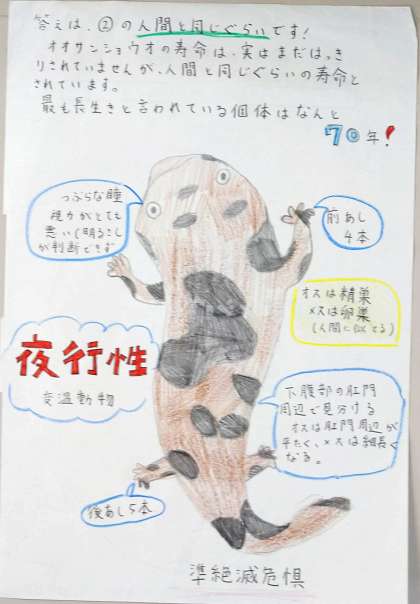 答えは、②の人間と同じぐらいです!
オオサンショウオの寿命は、実はまだはっき
りされていませんが、人間と同じぐらいの寿命と
されています。
最も長生きと言われている個体はなんと
70年!
つぶらな瞳
視力がとても
悪い(明るさし
か判断できず
前あし
4本
オスは精巣
メスは卵巣
(人間に似てる)
夜行性
変温動物
下腹部の肛門
周辺で見分ける
オスは肛門周辺が
平たく、メスは細長く
なる。
後あし5本
準絶滅危惧